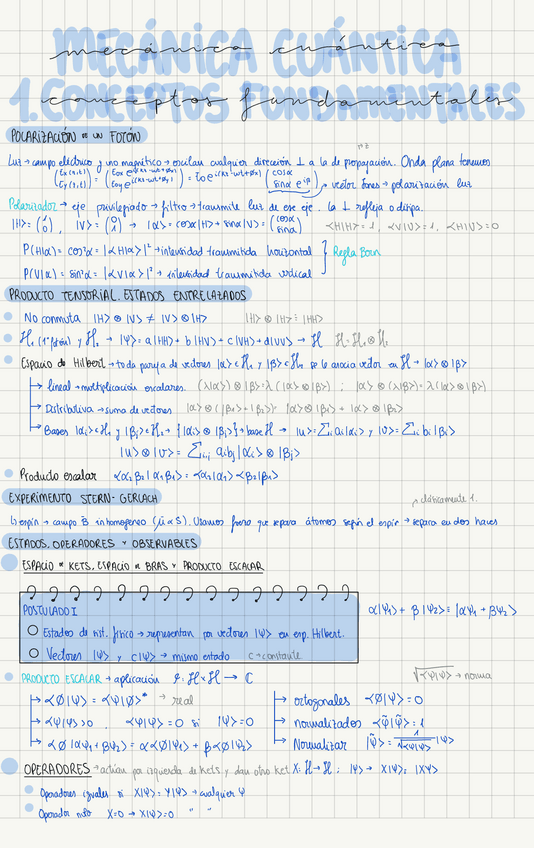 MECÁNICA CUÁNTICA
mecánica cuántica
1. CONCEPTOS FUNDAMENTALES
conceptos fundamentales
POLARIZACIÓN DE UN FOTÓN
Luz → campo eléctrico y uno magnético → oscilan cualquier dirección ⊥ a la de propagación. Onda plana tenemos
(Ex(r,t) / Ey(r,t)) = (Eox e^i(kz-wt+βx) / Eoy e^i(kz-wt+βy)) = E0 e^i(kz-wt+βx) (cosα / sinα e^iβ) → vector Jones → polarización luz
Polarizador → eje privilegiado → filtro → transmite luz de ese eje. la ⊥ refleja o disipa.
|H> = (1 / 0), |V> = (0 / 1) → |α> = cosα|H> + sinα|V> = (cosα / sinα) <H|H> = 1, <V|V> = 1, <H|V> = 0
P(H|α) = cos²α = |<H|α>|² → intensidad transmitida horizontal } Regla Born
P(V|α) = sin²α = |<V|α>|² → intensidad transmitida vertical
PRODUCTO TENSORIAL. ESTADOS ENTRELAZADOS
No conmuta |H> ⊗ |V> ≠ |V> ⊗ |H> |H> ⊗ |H> ≡ |HH>
H1 (1er fotón) y H2 → |Ψ> = a|HH> + b|HV> + c|VH> + d|VV> → H H = H1 ⊗ H2
Espacio de Hilbert → toda pareja de vectores |α> ∈ H1 y |β> ∈ H2 se le asocia vector en H → |α> ⊗ |β>
lineal → multiplicación escalares. (λ|α>) ⊗ |β> = λ(|α> ⊗ |β>) ; |α> ⊗ (λ|β>) = λ(|α> ⊗ |β>)
Distributiva → suma de vectores |α> ⊗ (|β1> + |β2>) = |α> ⊗ |β1> + |α> ⊗ |β2>
Bases |αi> ∈ H1 y |βj> ∈ H2 → {|αi> ⊗ |βj>} → base H → |u> = Σi ai|αi> y |v> = Σi bi|βi>
|u> ⊗ |v> = Σi,j ai bj |αi> ⊗ |βj>
Producto escalar <α2 β2 | α1 β1> = <α2|α1> <β2|β1>
EXPERIMENTO STERN-GERLACH
clásicamente 1.
espín → campo B inhomogéneo (μ ∝ S). Usamos fuerza que separa átomos según el espín → separa en dos haces
ESTADOS, OPERADORES Y OBSERVABLES
ESPACIO DE KETS, ESPACIO DE BRAS Y PRODUCTO ESCALAR
POSTULADO I
α|Ψ1> + β|Ψ2> = |αΨ1 + βΨ2>
Estados de sist. físico → representan por vectores |Ψ> en esp. Hilbert.
Vectores |Ψ> y c|Ψ> → mismo estado c → constante
PRODUCTO ESCALAR → aplicación g: H x H → C √<Ψ|Ψ> → norma
<Ø|Ψ> = <Ψ|Ø>* → real
ortogonales <Ø|Ψ> = 0
<Ψ|Ψ> > 0 , <Ψ|Ψ> = 0 si |Ψ> = 0
normalizados <Ψ̃|Ψ̃> = 1
<Ø|αΨ1 + βΨ2> = α<Ø|Ψ1> + β<Ø|Ψ2>
Normalizar |Ψ̃> = 1/√<Ψ|Ψ> |Ψ>
OPERADORES → actúan por izquierda de kets y dan otro ket X: H → H ; |Ψ> → X|Ψ> = |XΨ>
Operadores iguales si X|Ψ> = Y|Ψ> → cualquier Ψ
Operador nulo X = 0 → X|Ψ> = 0 " "